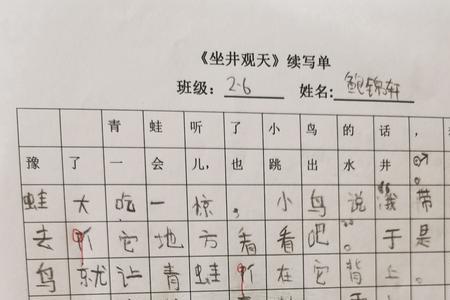 《坐井观天》续写单
班级：2.6 姓名：鲍锦轩
青蛙听了小鸟的话，
豫了一会儿，也跳出水井。
蛙大吃一惊。小鸟说“我带
去听它地方看看吧”。于是
鸟就让青蛙听在它背上。